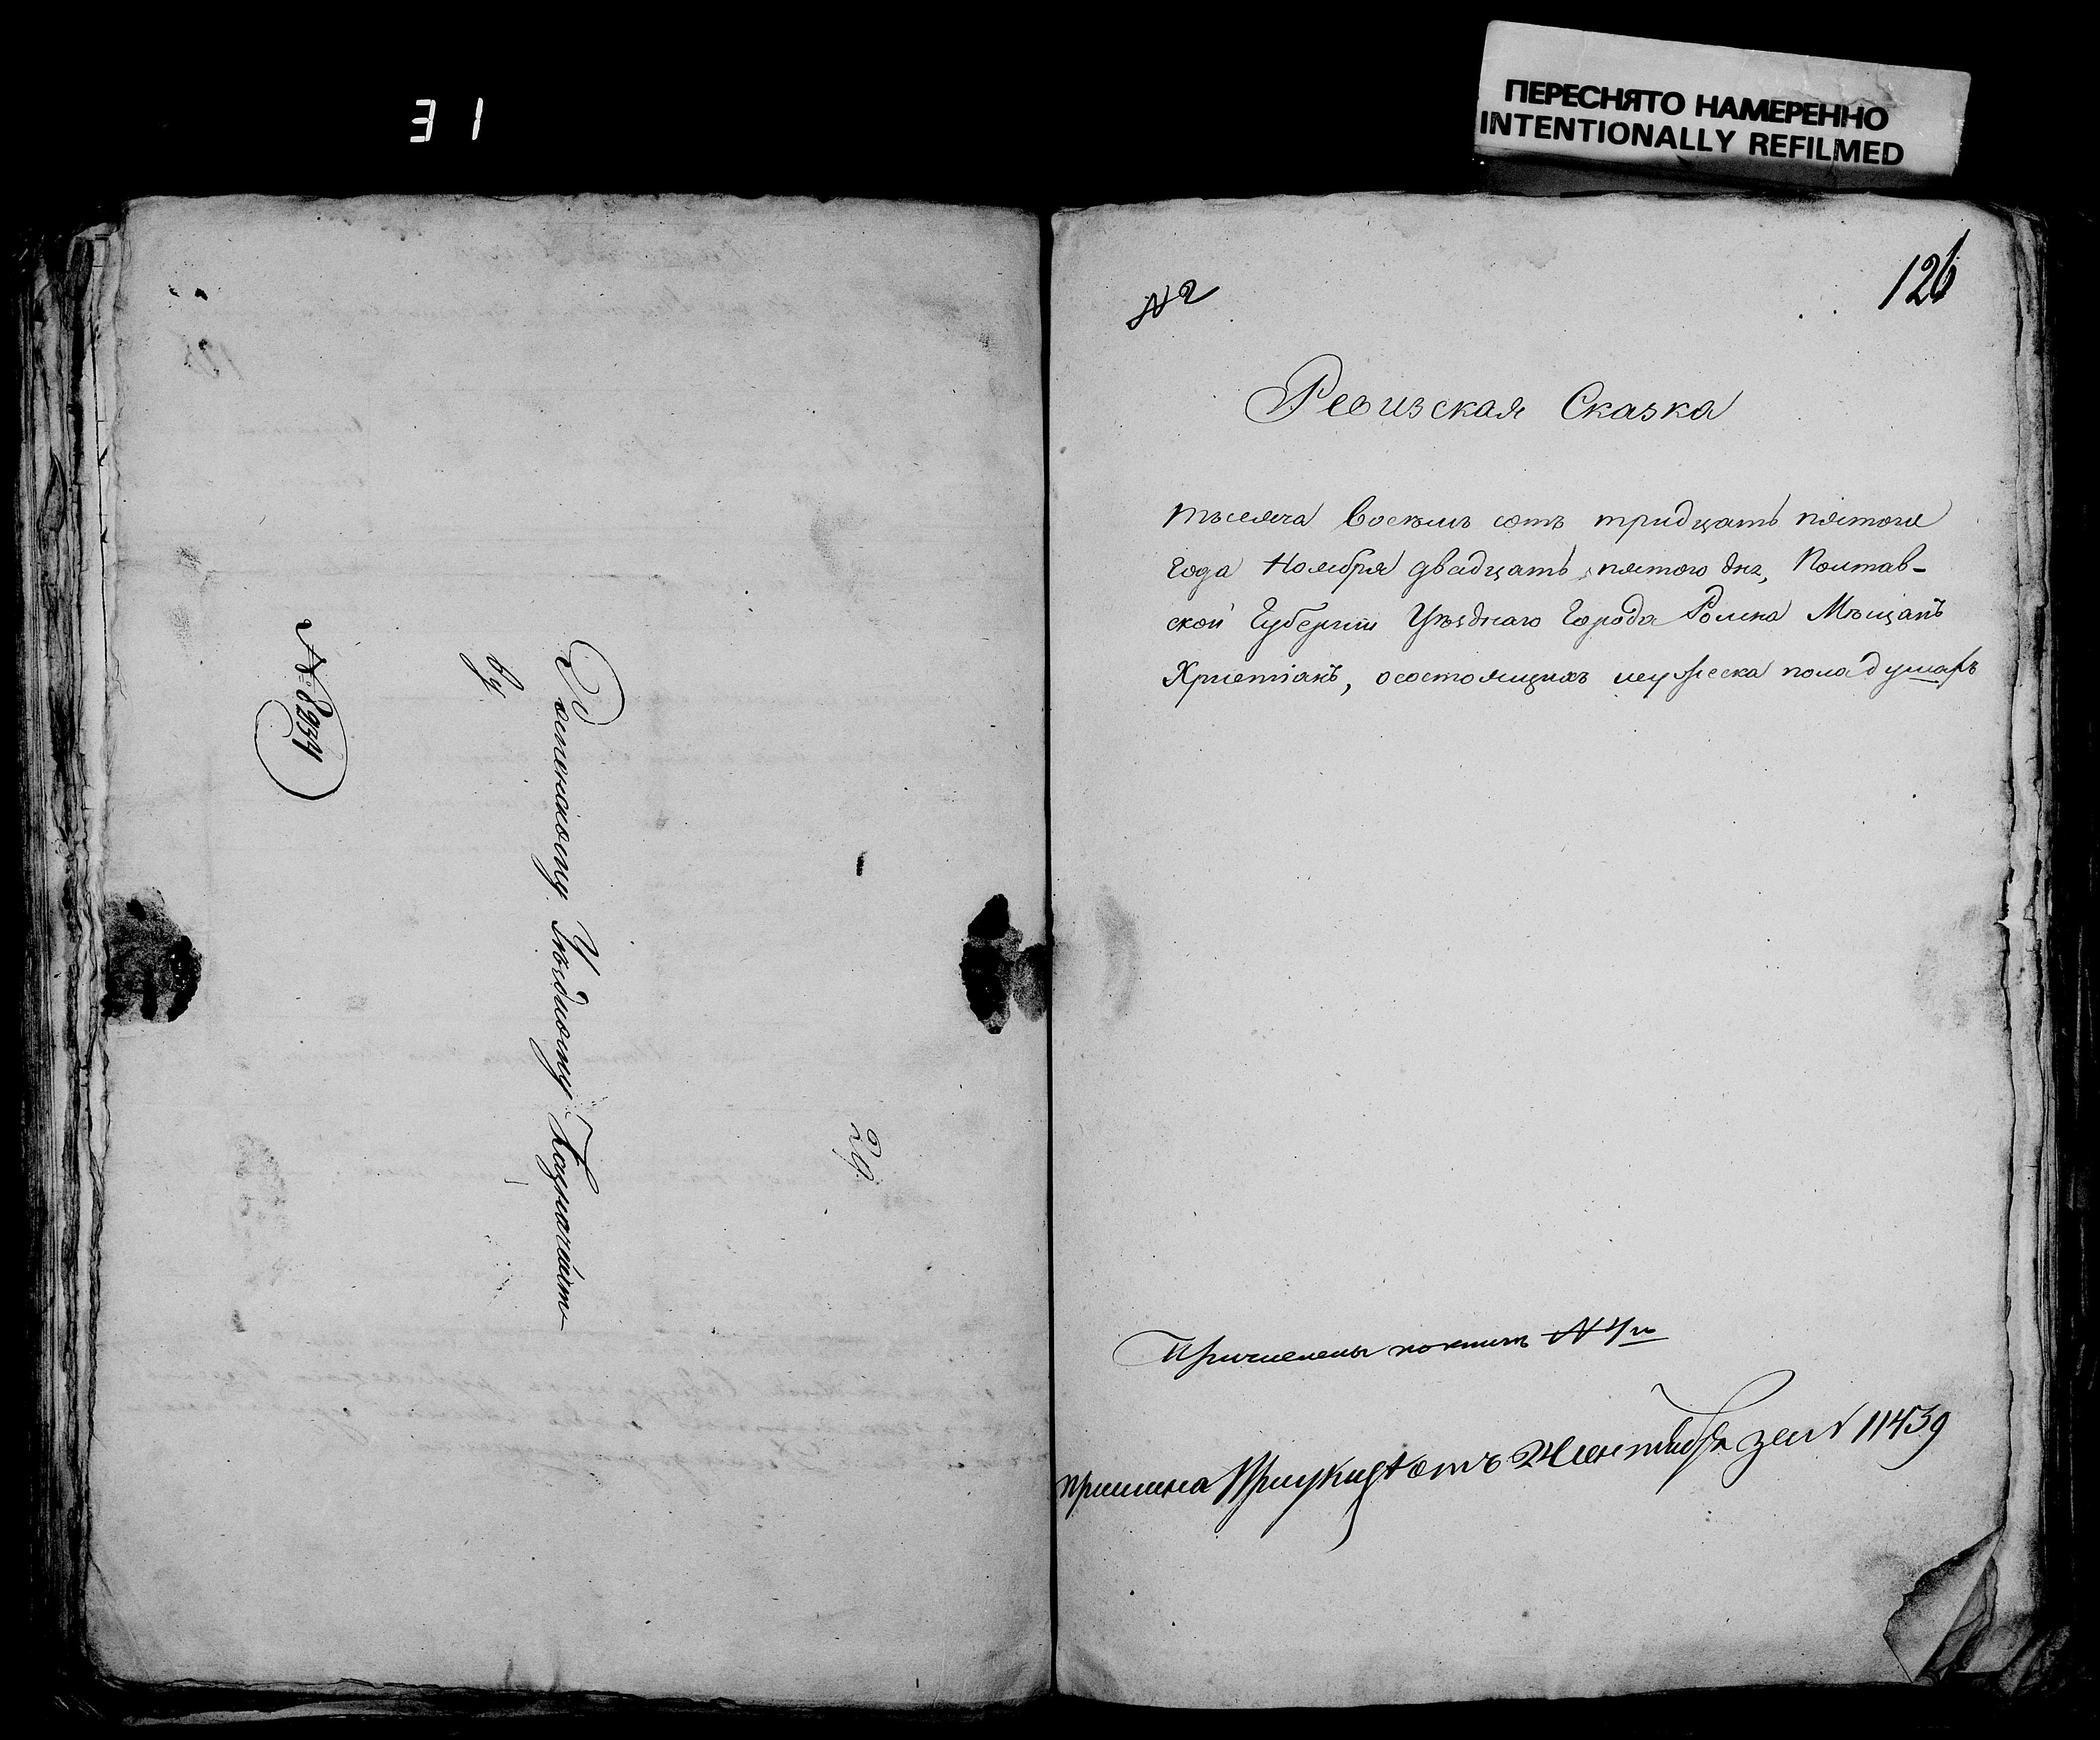 31
ПЕРЕСНЯТО НАМЕРЕННО
INTENTIONALLY REFILMED
Роменскому Уѣздному Казначейст-
ву
№ 8934
29
№ 2
126
Ревизская Сказка
тысяча восемь сотъ тридцать пятого
года Ноября двадцать пятого дня, Полтав-
ской Губернии Уѣзднаго Города Ромна Мѣщанъ
Христіянъ, о состоящихъ мужеска пола душахъ
Причислены по книгѣ № 4й
при указѣ отъ 24 сентября за № 11439